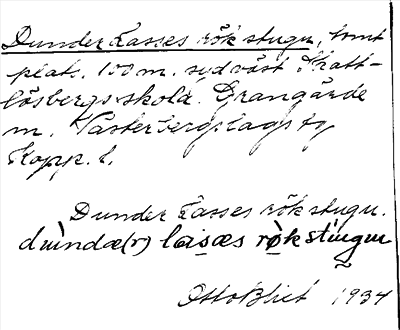 Dunder Lasses rökstugu, tomt
plats. 100 m. sydväst Skatt-
lösbergs skola. Grangärde
sn. Västerbergslags tg
Kopp. l.
Dunder Lasses rökstugu.
Otto Blixt 1934